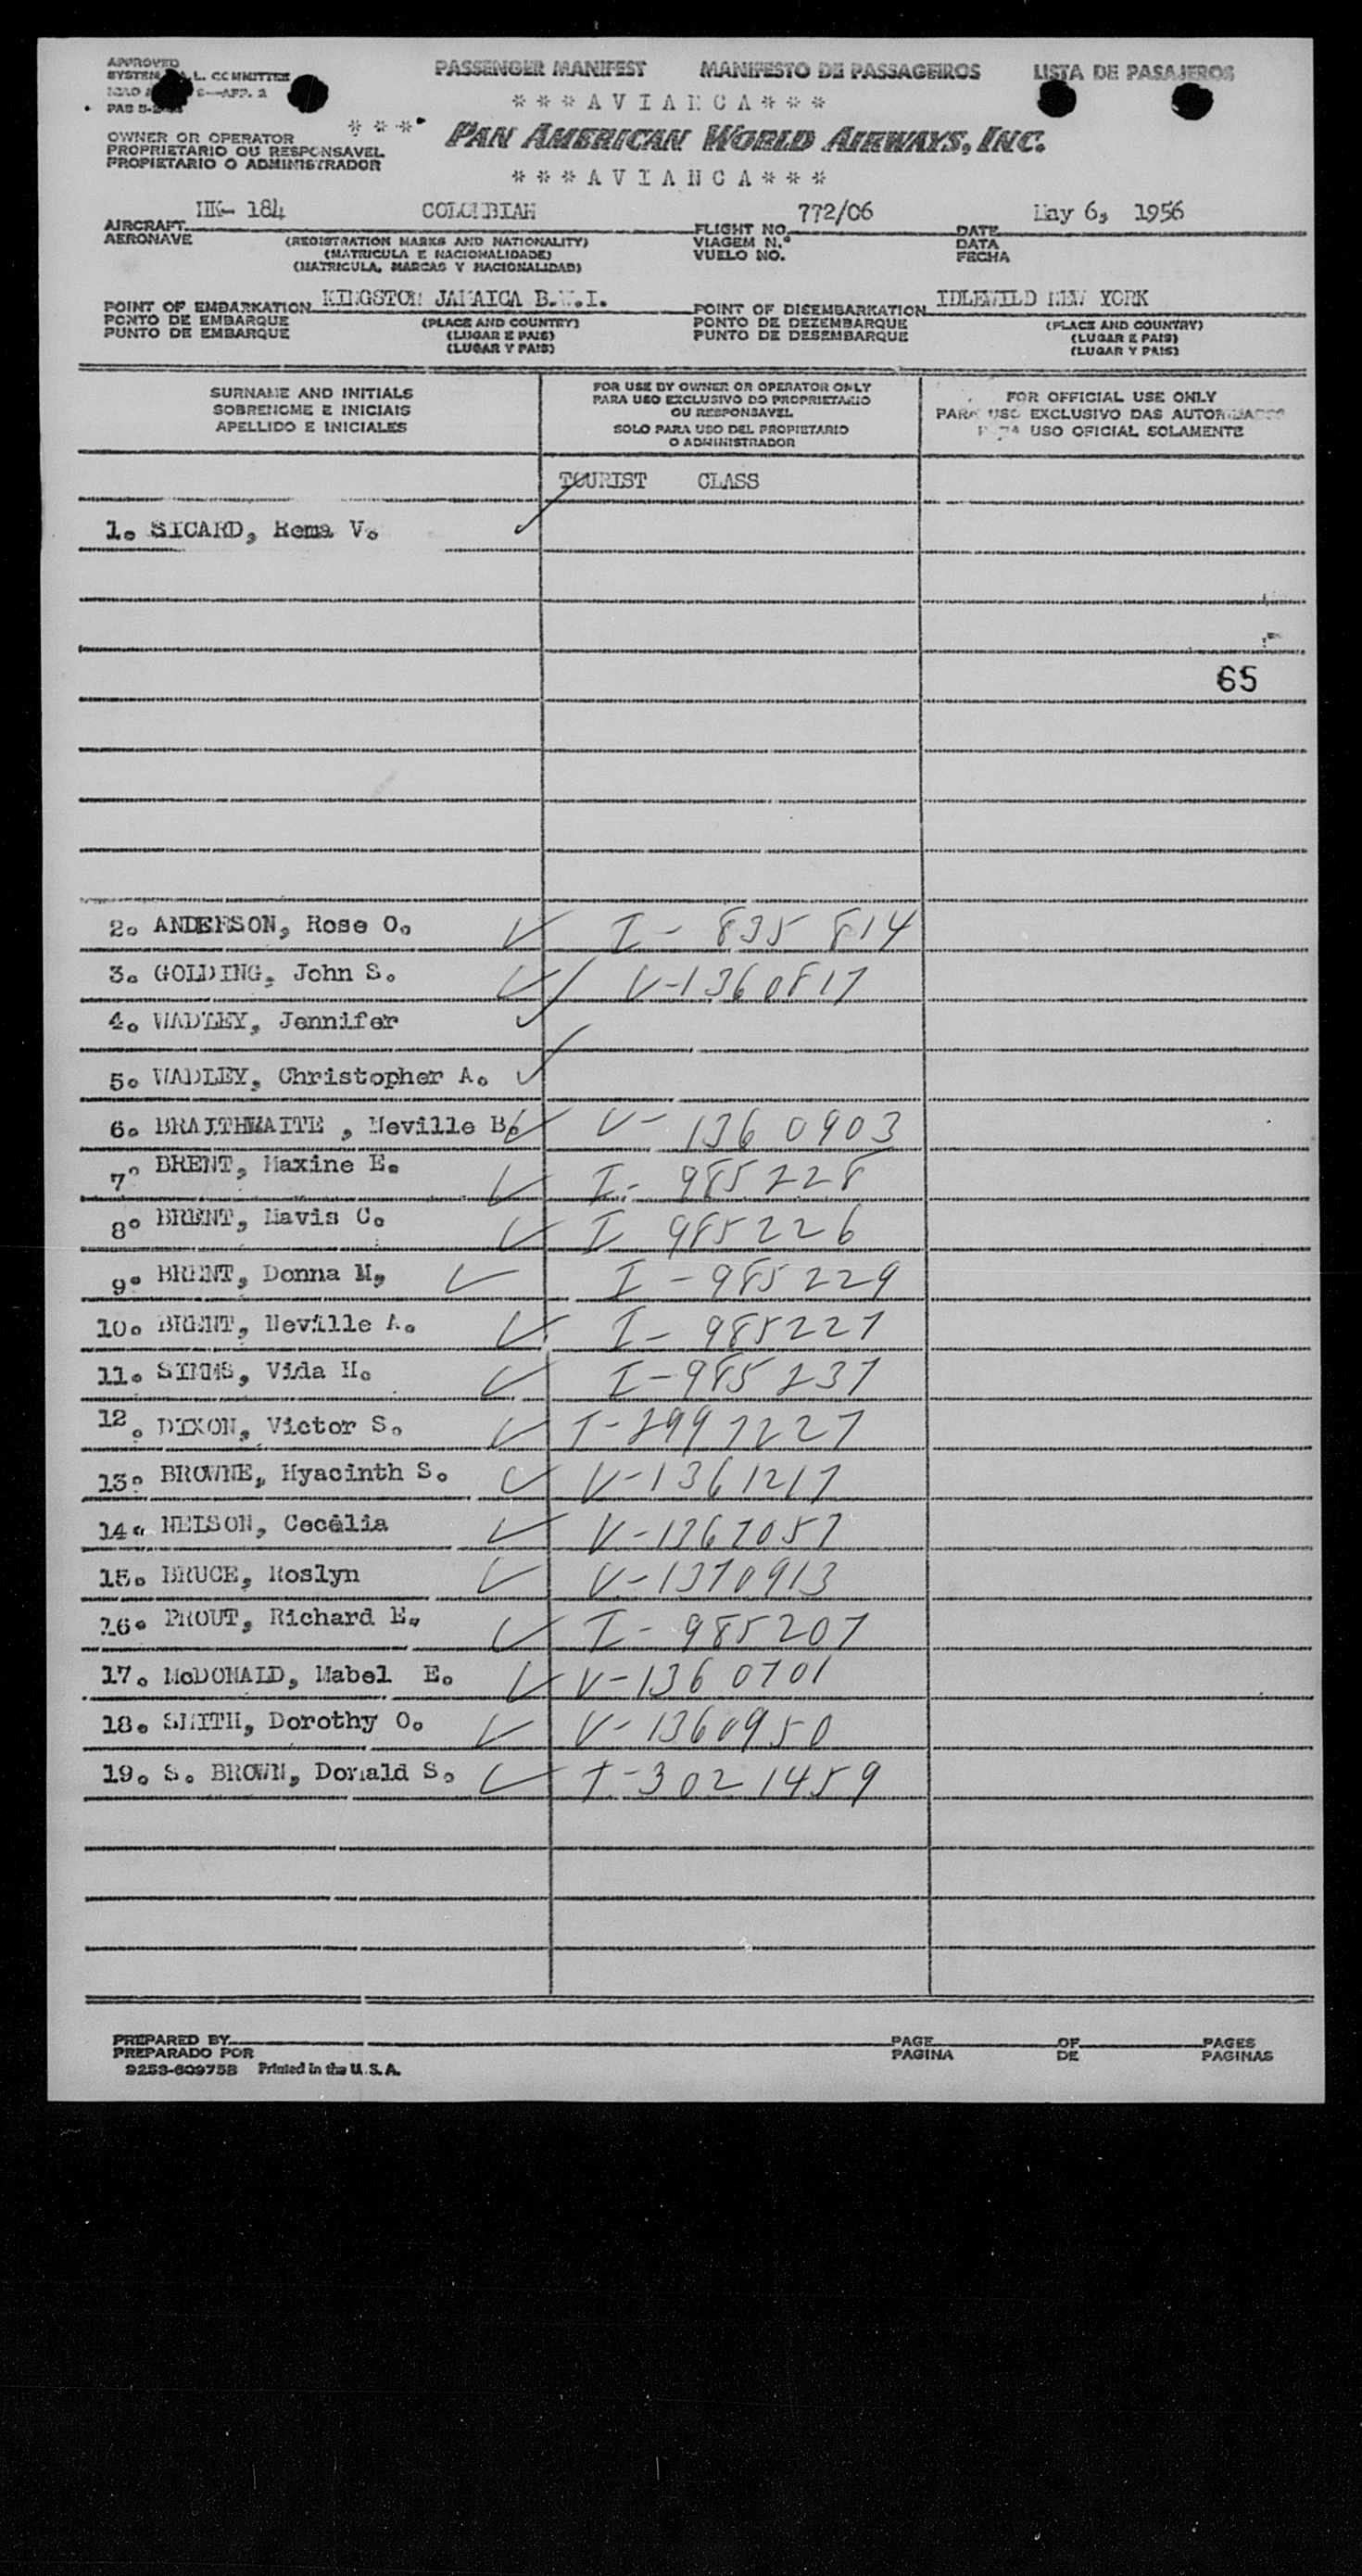 APPROVED
SYSTEM L. COMMITTEE
PASSENGER MANIFEST MANIFESTO DE PASSAGEIROS LISTA DE PASAJEROS
***AVIANCA***
OWNER OR OPERATOR
PROPRIETARIO OU RESPONSAVEL
PROPIETARIO O ADMINISTRADOR
*** PAN AMERICAN WORLD AIRWAYS, INC.
***AVIANCA***
AIRCRAFT HK- 184 COLOMBIAN FLIGHT NO. 772/06 DATE May 6, 1956
AERONAVE (REGISTRATION MARKS AND NATIONALITY) VIAGEM N.º DATA
(MATRICULA E NACIONALIDADE) VUELO NO. FECHA
(MATRICULA, MARCAS Y NACIONALIDAD)
POINT OF EMBARKATION KINGSTON JAMAICA B.W.I. POINT OF DISEMBARKATION IDLEWILD NEW YORK
PONTO DE EMBARQUE (PLACE AND COUNTRY) PONTO DE DEZEMBARQUE (PLACE AND COUNTRY)
PUNTO DE EMBARQUE (LUGAR E PAIS) PUNTO DE DESEMBARQUE (LUGAR E PAIS)
(LUGAR Y PAIS) (LUGAR Y PAIS)
SURNAME AND INITIALS
SOBRENOME E INICIAIS
APELLIDO E INICIALES
FOR USE BY OWNER OR OPERATOR ONLY
PARA USO EXCLUSIVO DO PROPRIETARIO
OU RESPONSAVEL
SOLO PARA USO DEL PROPIETARIO
O ADMINISTRADOR
FOR OFFICIAL USE ONLY
PARA USO EXCLUSIVO DAS
USO OFICIAL SOLAMENTE
TOURIST CLASS
1. SICARD, Rema V.
65
2. ANDERSON, Rose O. I- 835 814
3. GOLDING, John S. V-1360817
4. WADLEY, Jennifer
5. WADLEY, Christopher A.
6. BRAITHWAITE , Neville B. V- 1360903
7. BRENT, Maxine E. I- 985228
8. BRENT, Mavis C. I 985226
9. BRENT, Donna M, I-985229
10. BRENT, Neville A. I- 985227
11. SIMMS, Vida H. I-985237
12. DIXON, Victor S. T-2997227
13. BROWNE, Hyacinth S. V-1361217
14. NELSON, Cecelia V-1367057
15. BRUCE, Roslyn V-1370913
16. PROUT, Richard E. I- 985207
17. McDONALD, Mabel E. V-1360701
18. SMITH, Dorothy O. V-1360950
19. S. BROWN, Donald S. T-3021459
PREPARED BY PAGE OF PAGES
PREPARADO POR PAGINA DE PAGINAS
9253-609758 Printed in the U.S.A.